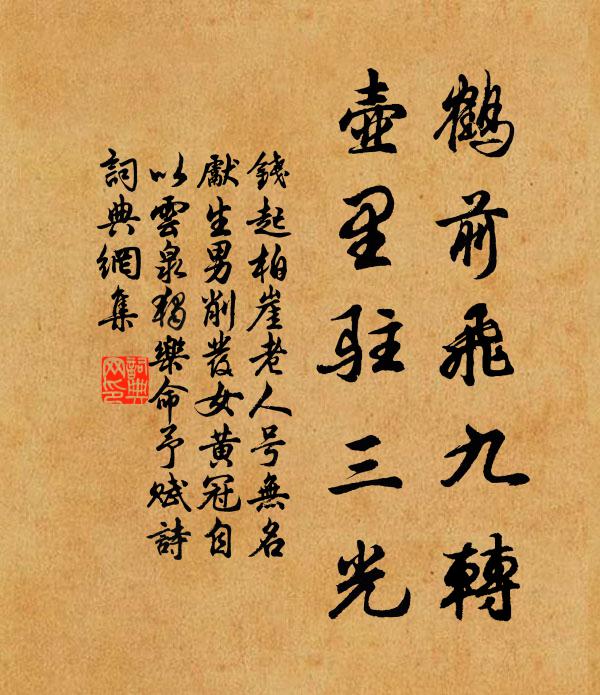 鶴前飛九轉
壺里駐三光
錢起柏崖老人号無名
獻生男削發女黃冠自
以雲泉獨樂命予賦詩
詞典網集
詞典
网印